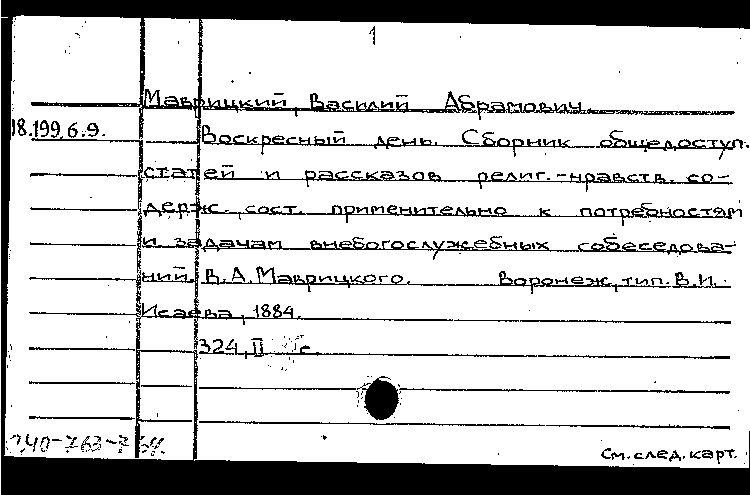 1
Маврицкий, Василий Абрамович.
18.199.6.9.
Воскресный день. Сборник общедоступ.
статей и рассказов религ.-нравств. со-
держ., сост. применительно к потребностям
и задачам внебогослужебных собеседова-
ний. В.А. Маврицкого. Воронеж, тип. В.И.
Исаева, 1884.
324, II с.
См. след. карт.